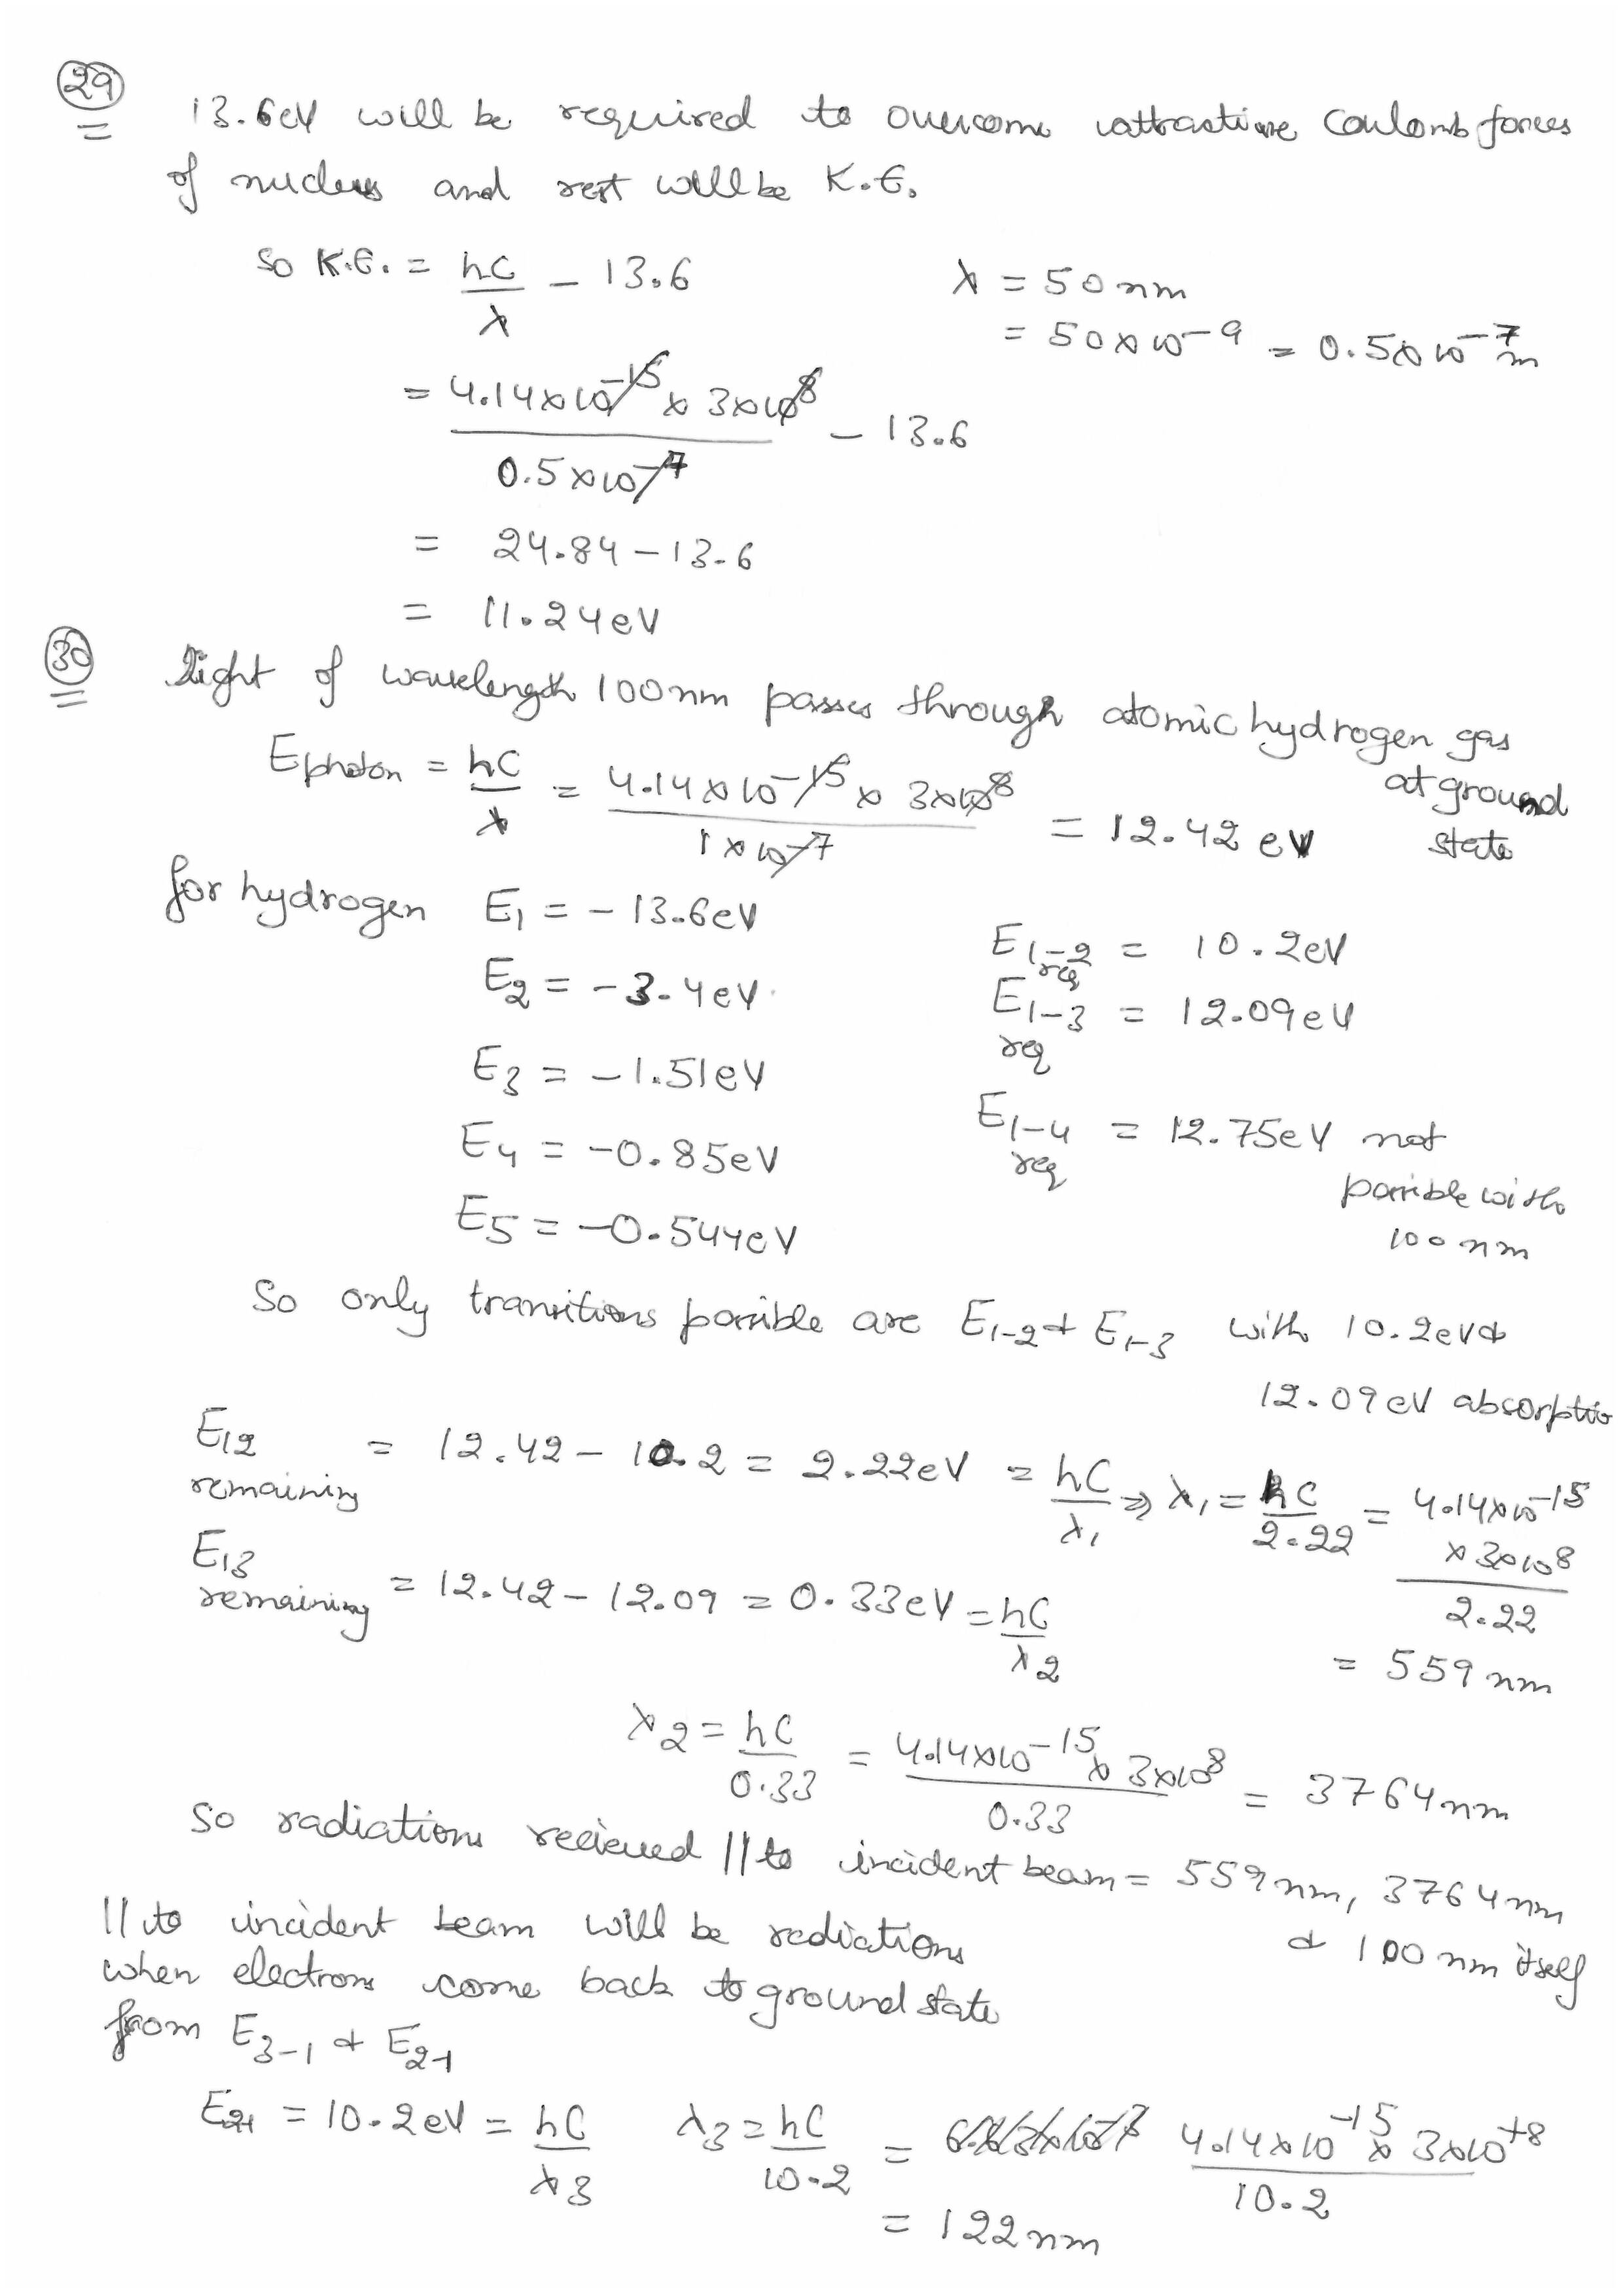 29
13.6eV will be required to overcome attractive Coulomb forces
of nucleus and rest will be K.E.
So K.E. = hC/λ - 13.6
λ = 50nm
= 50×10^-9 = 0.5×10^-7 m
= 4.14×10^-15 × 3×10^8 / 0.5×10^-7 - 13.6
= 24.84 - 13.6
= 11.24eV
30
Light of wavelength 100nm passes through atomic hydrogen gas
at ground
state
Ephoton = hC/λ = 4.14×10^-15 × 3×10^8 / 1×10^-7 = 12.42 eV
for hydrogen E1 = -13.6eV
E2 = -3.4eV
E3 = -1.51eV
E4 = -0.85eV
E5 = -0.544eV
E1-2 req = 10.2eV
E1-3 req = 12.09eV
E1-4 req = 12.75eV not
possible with
100nm
So only transitions possible are E1-2 & E1-3 with 10.2eV &
12.09eV absorptio
E12 remaining = 12.42 - 10.2 = 2.22eV = hC/λ1 ⇒ λ1 = hC/2.22 = 4.14×10^-15 × 3×10^8 / 2.22
= 559nm
E13 remaining = 12.42 - 12.09 = 0.33eV = hC/λ2
λ2 = hC/0.33 = 4.14×10^-15 × 3×10^8 / 0.33 = 3764nm
So radiations recieved || to incident beam = 559nm, 3764nm
& 100nm itself
|| to incident beam will be radiations
when electrons come back to ground state
from E3-1 & E2-1
E21 = 10.2eV = hC/λ3 λ3 = hC/10.2 = 4.14×10^-15 × 3×10^+8 / 10.2
= 122nm